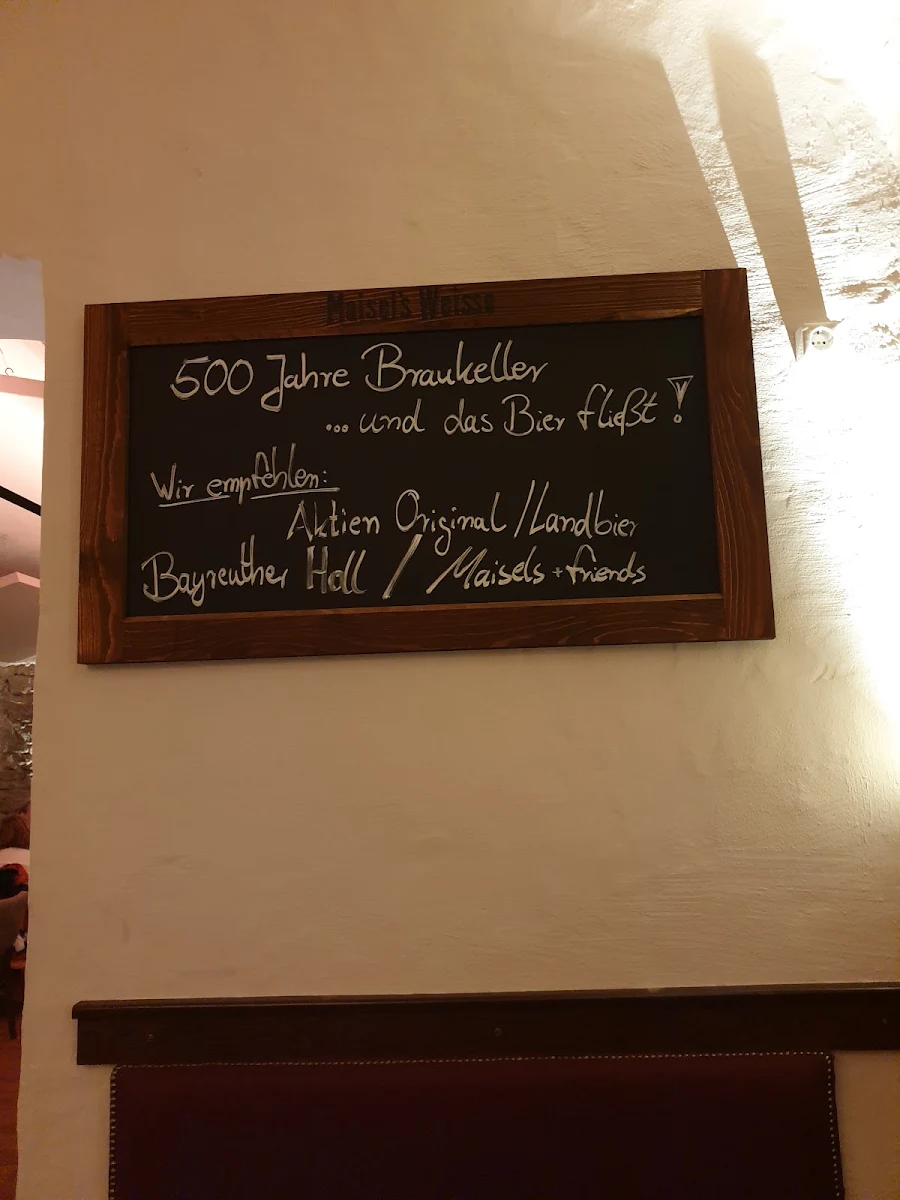 Maisel's Weisse
500 Jahre Braukeller
... und das Bier fließt!
Wir empfehlen:
Aktien Original / Landbier
Bayreuther Hell / Maisels + friends